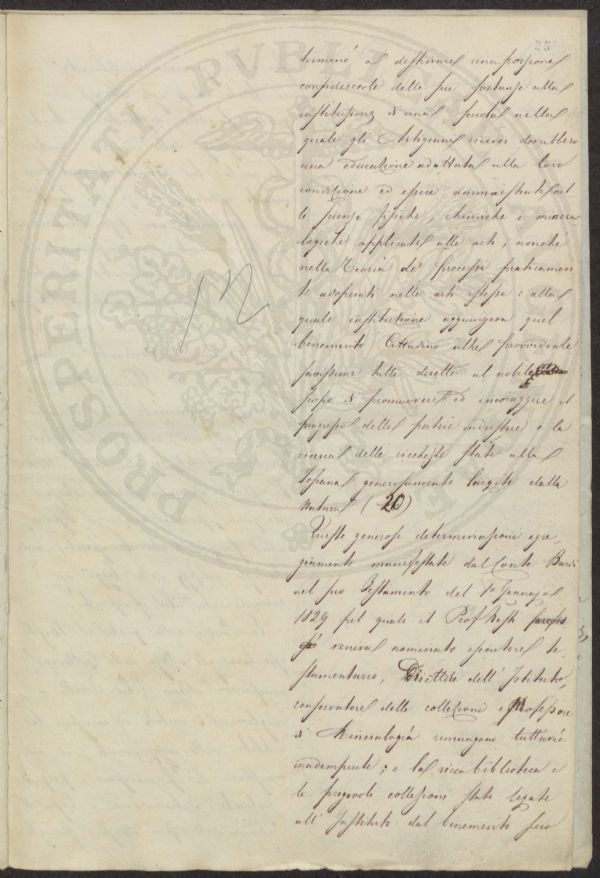 23
PROSPERITATI PUBLICA
terminò a destinare una porzione
considerevole delle sue sostanze alla
instituzione di una Scuola nella
quale gli Artigiani ricever dovrebbero
una educazione adattata alla loro
condizione ed essere ammaestrati nel
le scienze fisiche, chimiche e minera
logiche applicate alle arti, nonchè
nella Teoria de' processi praticamen
te adoperati nelle arti stesse: alla
quale instituzione aggiungeva quel
benemerito Cittadino altre provvidenze
tutte dirette al nobile
scopo di promuovere ed incoraggire il
progresso delle patrie industrie e la
ricerca delle ricchezze state alla
Toscana generosamente largite dalla
Natura (20)
Queste generose determinazioni egre,
giamente manifestate dal Conte Bardi
nel suo Testamento del Gennajo
1829 pel quale il Prof
veniva nominato esecutore te
stamentario, Direttore dell' Istituto,
conservatore delle collezioni e Professore
di Mineralogia rimangono tuttavia
inadempiute; e la ricca biblioteca e
le pregevoli collezioni state legate
all' Instituto dal benemerito suo
12